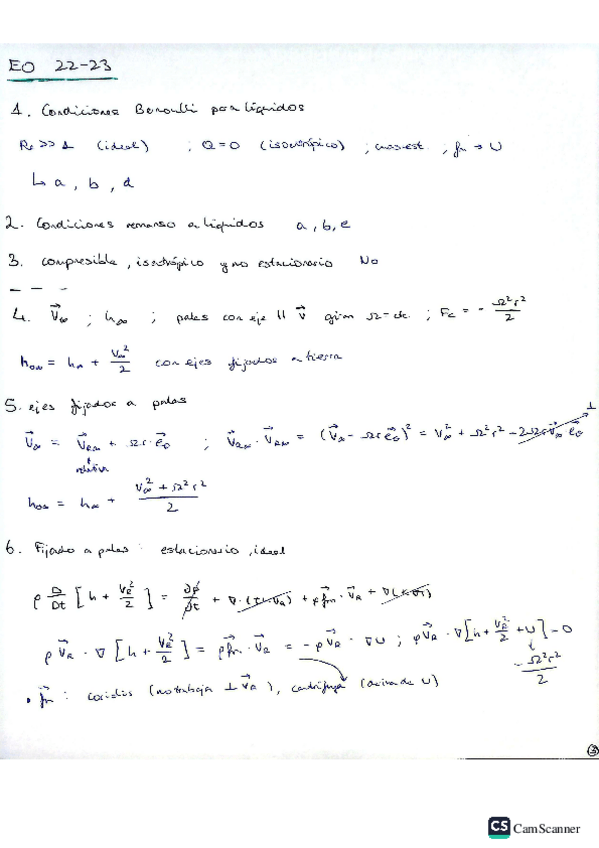 EO 22-23
1. Condiciones Bernoulli para líquidos
Re >> 1 (ideal) ; Q=0 (isoentrópico) ; cuasiest. , f̄m → U
↳ a, b, d
2. Condiciones remanso a líquidos a, b, e
3. compresible, isentrópico y no estacionario No
4. V⃗∞ ; h∞ ; palas con eje || v⃗ giran Ω=cte. ; Fc = - Ω²r²/2
h₀∞ = h∞ + V∞²/2 con ejes fijados a tierra
5. ejes fijados a palas
V⃗∞ = V⃗R∞ + Ωr·e⃗θ ; V⃗R∞ · V⃗R∞ = (V⃗∞ - Ωr e⃗θ)² = V∞² + Ω²r² - 2Ωr V⃗∞ e⃗θ ⊥
relativa
h₀∞ = h∞ + (V∞² + Ω²r²)/2
6. Fijado a palas: estacionario, ideal
ρ D/Dt [h + VR²/2] = ∂p/∂t + ∇·(τ·VR) + ρf⃗m·V⃗R + ∇(k∇T)
ρV⃗R · ∇[h + VR²/2] = ρf⃗m·V⃗R = -ρV⃗R · ∇U ; ρV⃗R · ∇[h + VR²/2 + U] = 0
- Ω²r²/2
• f⃗m : coriolis (no trabaja ⊥ V⃗R), centrífuga (deriva de U)
3
CS CamScanner